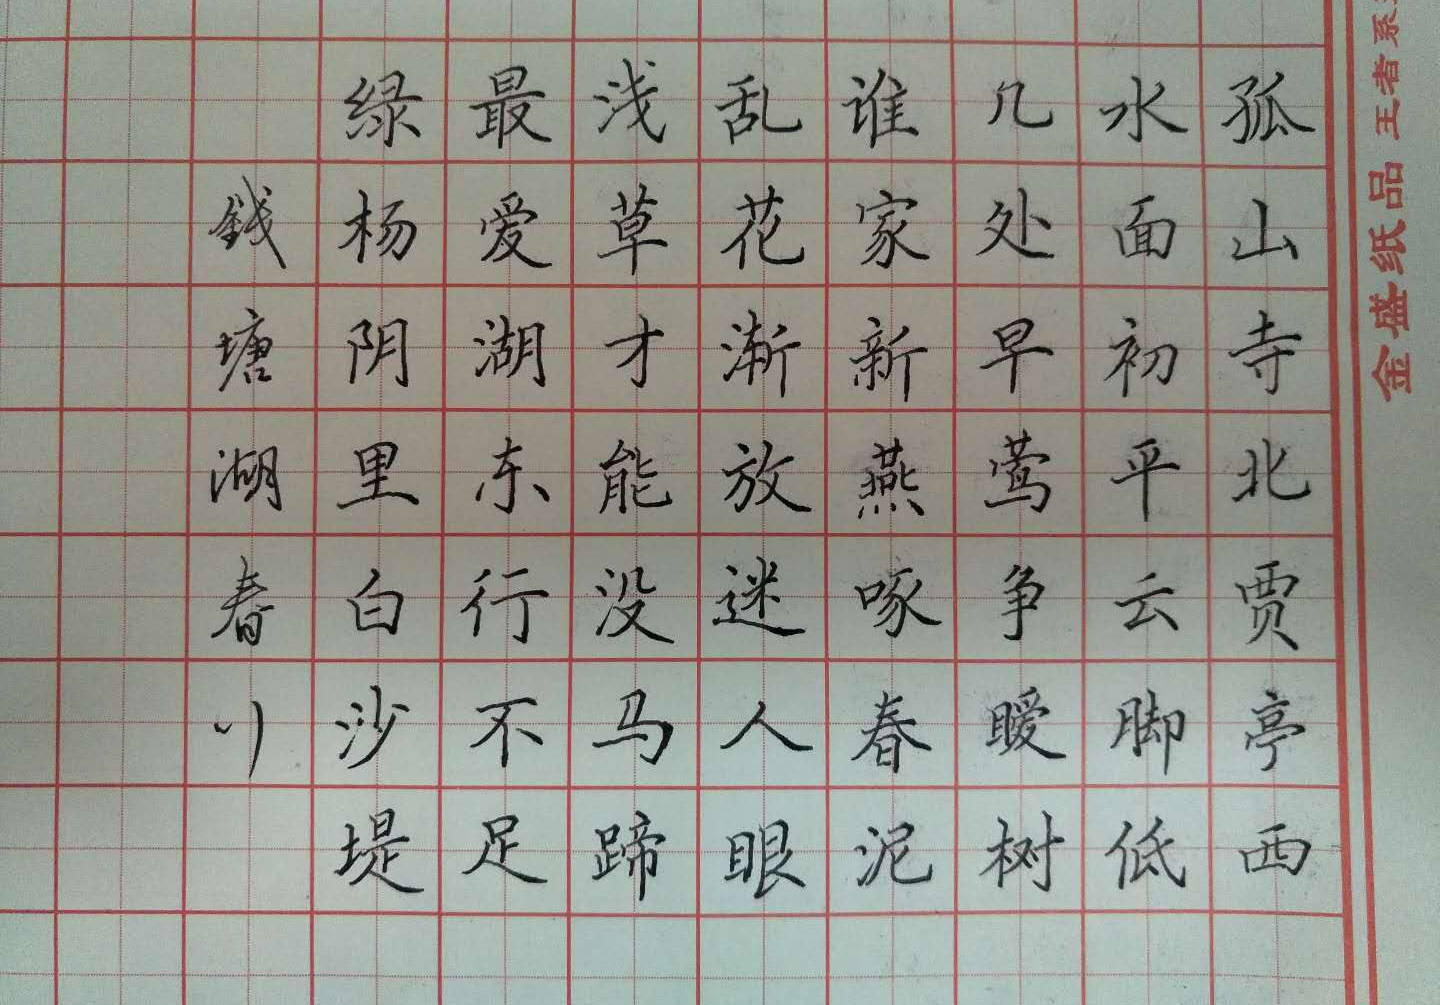 孤山寺北贾亭西
水面初平云脚低
几处早莺争暖树
谁家新燕啄春泥
乱花渐放迷人眼
浅草才能没马蹄
最爱湖东行不足
绿杨阴里白沙堤
錢塘湖春
金盛纸品 王者系